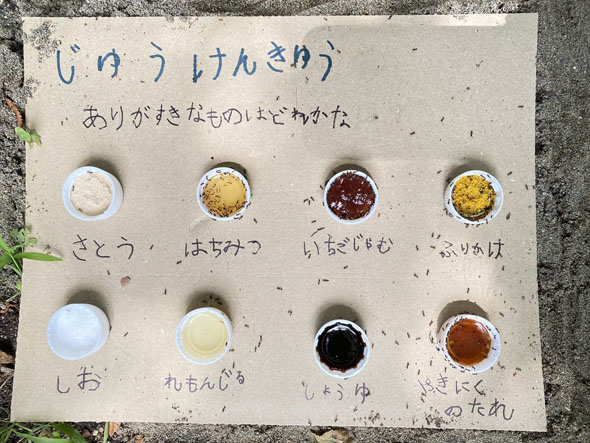 じゆうけんきゅう
ありがすきなものはどれかな
さとう
はちみつ
いちごじゃむ
ふりかけ
しお
れもんじる
しょうゆ
やきにく
のたれ